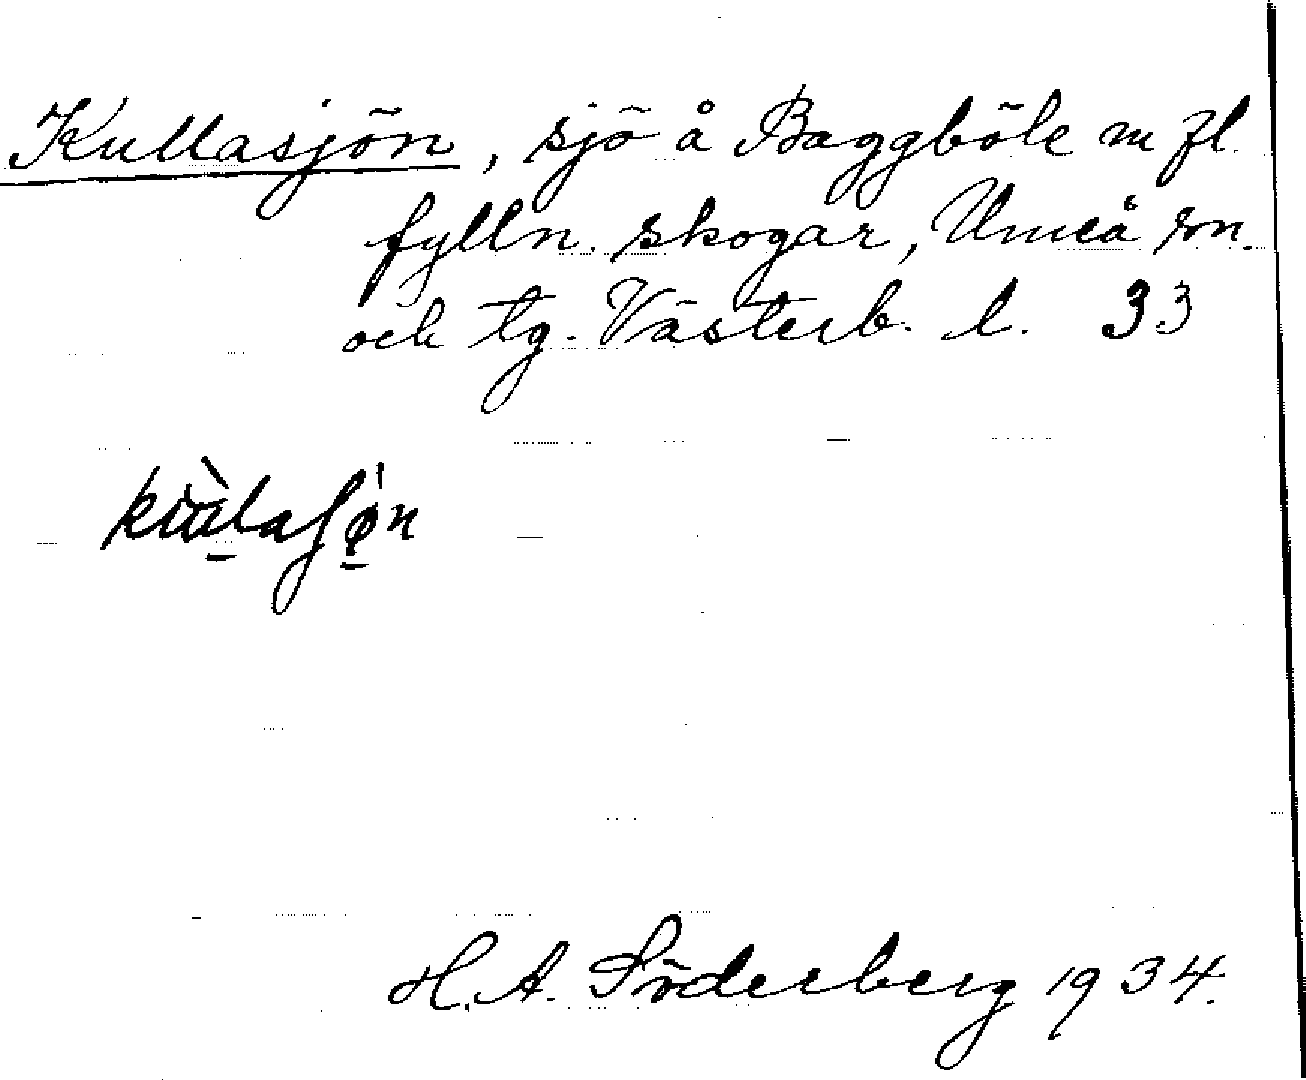 Kullasjön, sjö å Baggböle m fl
fylln. skogar, Umeå sn.
och tg. Västerb. l. 33
H. A. Söderberg 1934.